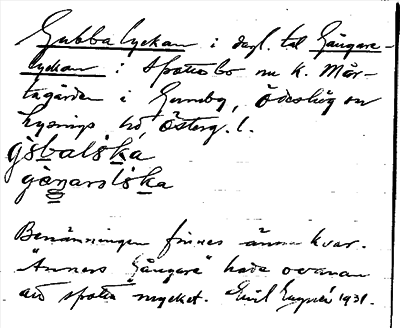 Gubbalyckan i dagl. tal Gångare-
lyckan i Spottebo nu k. Mår-
tagården i Gunneby, Ödeshög sn
Lysings hd, Österg. l.
gsbalska
gånarslska
Benämningen finnes ännu kvar.
"Anners Gångare" hade ovanan
att spotta mycket. Emil 1931.